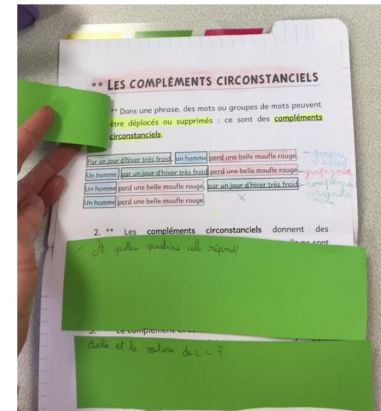 ** LES COMPLÉMENTS CIRCONSTANCIELS
** Dans une phrase, des mots ou groupes de mots peuvent
être déplacés ou supprimés : ce sont des compléments
circonstanciels.
Par un jour d'hiver très froid, un homme perd une belle moufle rouge.
Un homme, par un jour d'hiver très froid, perd une belle moufle rouge.
Un homme perd une belle moufle rouge, par un jour d'hiver très froid.
X
Un homme perd une belle moufle rouge.
2. ** Les compléments circonstanciels donnent des
sont
A quelles questions cela répond
3. Le complément
Quelle et la nature du c c ?